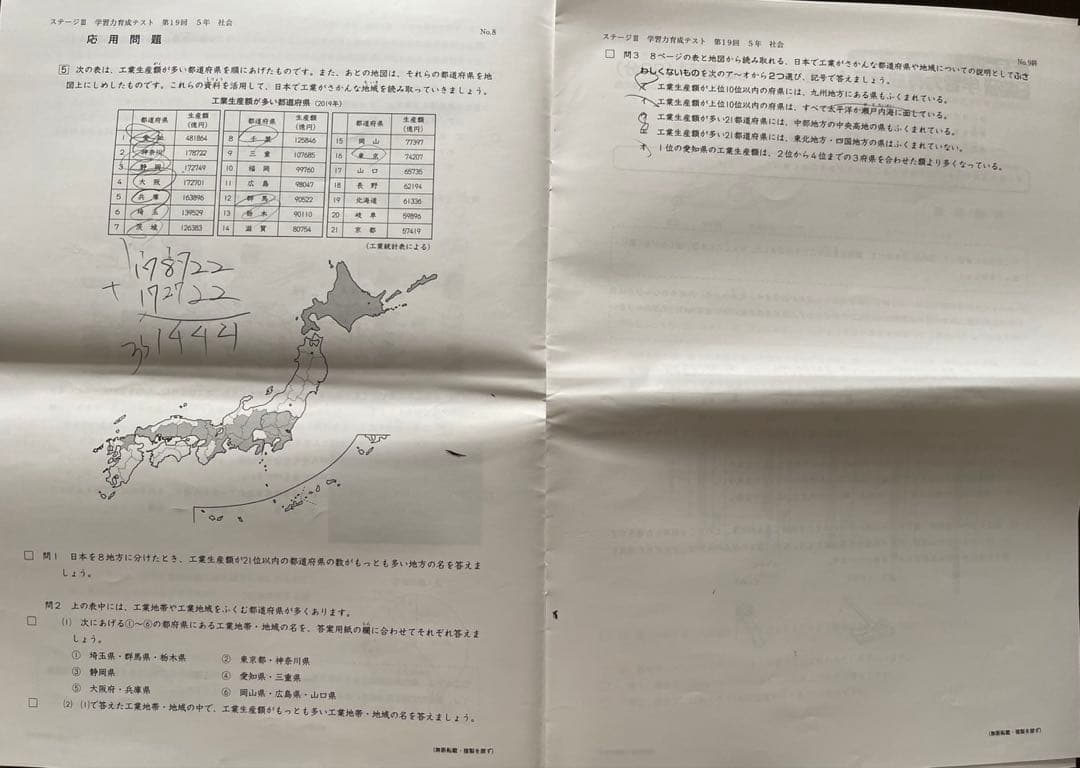 ステージⅢ 学習力育成テスト 第19回 5年 社会
No.8
応用問題
5 次の表は、工業生産額が多い都道府県を順にあげたものです。また、あとの地図は、それらの都道府県を地
図上にしめしたものです。これらの資料を活用して、日本で工業がさかんな地域を読み取っていきましょう。
工業生産額が多い都道府県（2019年）
都道府県 生産額（億円） 都道府県 生産額（億円） 都道府県 生産額（億円）
1 愛知 481864 8 千葉 125846 15 岡山 77397
2 神奈川 178722 9 三重 107685 16 東京 74207
3 静岡 172749 10 福岡 99760 17 山口 65735
4 大阪 172701 11 広島 98047 18 長野 62194
5 兵庫 163896 12 群馬 90522 19 北海道 61336
6 埼玉 139529 13 栃木 90110 20 岐阜 59896
7 茨城 126383 14 滋賀 80754 21 京都 57419
（工業統計表による）
178722
+ 172722
351444
問1 日本を8地方に分けたとき、工業生産額が21位以内の都道府県の数がもっとも多い地方の名を答えま
しょう。
問2 上の表中には、工業地帯や工業地域をふくむ都道府県が多くあります。
(1) 次にあげる①〜⑥の都府県にある工業地帯・地域の名を、答案用紙の欄に合わせてそれぞれ答えま
しょう。
① 埼玉県・群馬県・栃木県 ② 東京都・神奈川県
③ 静岡県 ④ 愛知県・三重県
⑤ 大阪府・兵庫県 ⑥ 岡山県・広島県・山口県
(2) (1)で答えた工業地帯・地域の中で、工業生産額がもっとも多い工業地帯・地域の名を答えましょう。
（無断転載・複製を禁ず）
ステージⅢ 学習力育成テスト 第19回 5年 社会
No.9
問3 8ページの表と地図から読み取れる、日本で工業がさかんな都道府県や地域についての説明としてふさ
わしくないものを次のア〜オから2つ選び、記号で答えましょう。
ア 工業生産額が上位10位以内の府県には、九州地方にある県もふくまれている。
イ 工業生産額が上位10位以内の府県は、すべて太平洋か瀬戸内海に面している。
ウ 工業生産額が多い21都道府県には、中部地方の中央高地の県もふくまれている。
エ 工業生産額が多い21都道府県には、東北地方・四国地方の県はふくまれていない。
オ 1位の愛知県の工業生産額は、2位から4位までの3府県を合わせた額より多くなっている。
（無断転載・複製を禁ず）